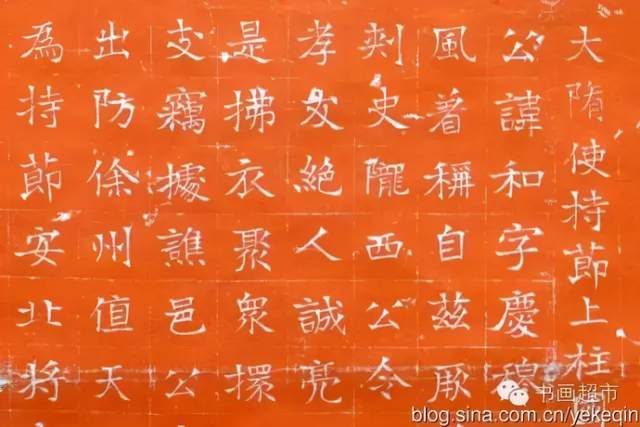 大隋使持節上柱國
公諱和字慶穆
風著稱自兹厥
刾史隴西公令
孝友絕人誠亮
是拂衣聚衆擐
支竊據譙邑公
出防徐州值天
為持節安北將
书画超市
blog.sina.com.cn/yekeqin